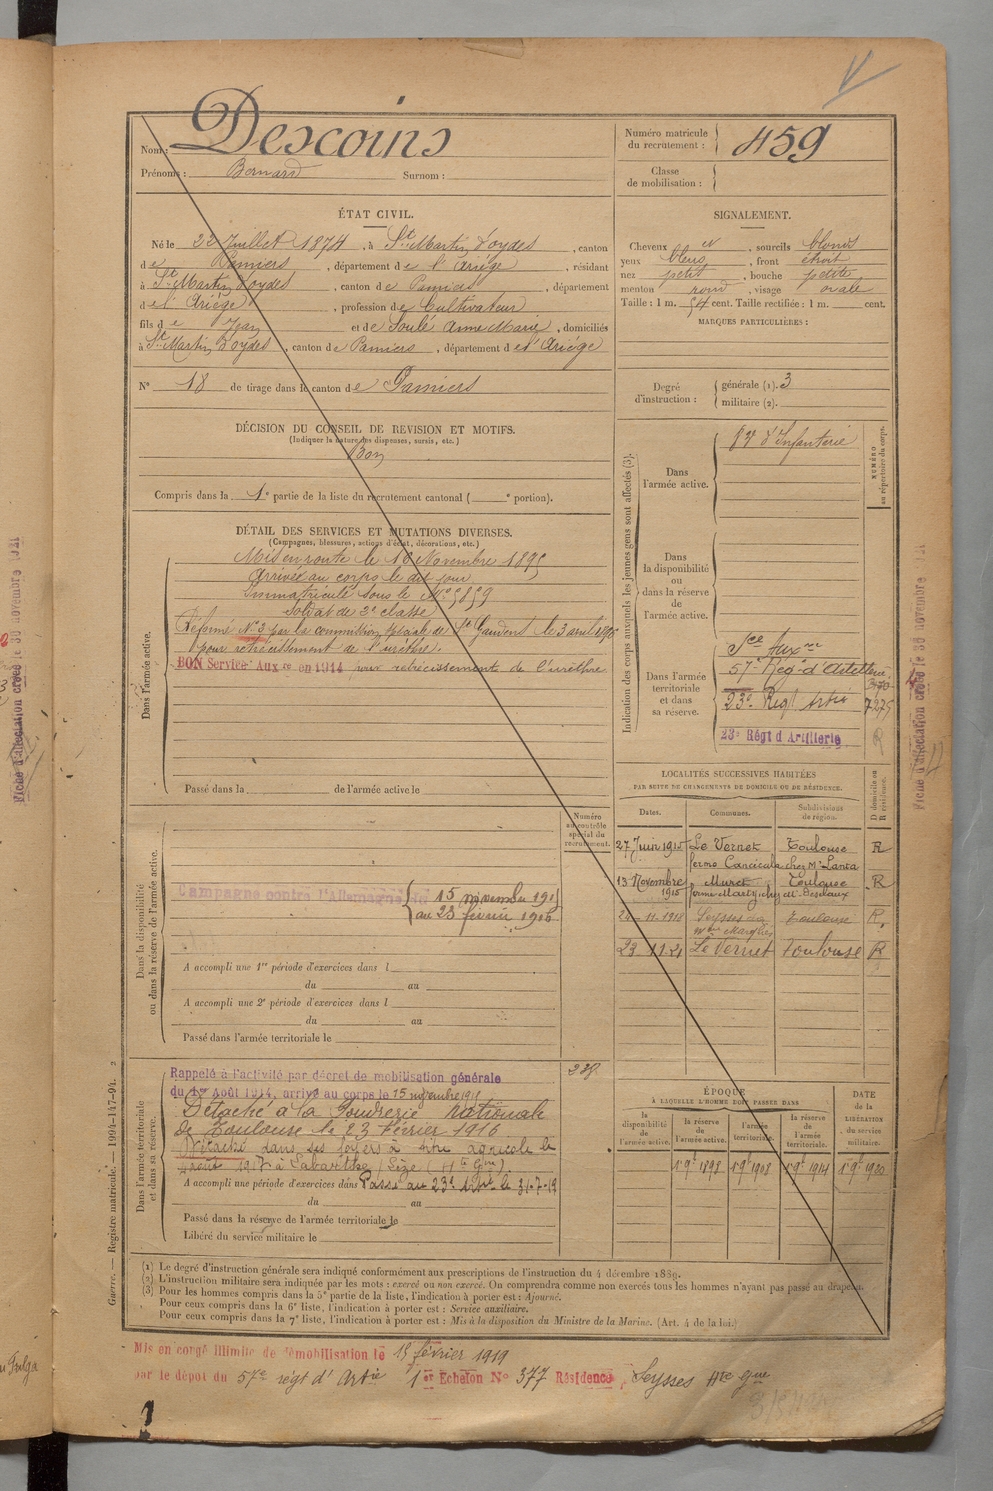 Nom : Descoins
Prénoms : Bernard Surnom :
Numéro matricule du recrutement : 459
Classe de mobilisation :
ÉTAT CIVIL.
Né le 22 Juillet 1874, à St Martin d'oydes, canton
de Pamiers, département de l'Ariége, résidant
à St Martin d'oydes, canton de Pamiers, département
de l'Ariége, profession de Cultivateur
fils de Jean et de Soulé Anne Marie, domiciliés
à St Martin d'oydes, canton de Pamiers, département de l'Ariége
N° 18 de tirage dans le canton de Pamiers
SIGNALEMENT.
Cheveux et, sourcils blonds
yeux bleus, front étroit
nez petit, bouche petite
menton rond, visage ovale
Taille : 1 m. 54 cent. Taille rectifiée : 1 m. cent.
MARQUES PARTICULIÈRES :
Degré d'instruction : générale (1). 3
militaire (2).
DÉCISION DU CONSEIL DE REVISION ET MOTIFS.
(Indiquer la nature des dispenses, sursis, etc.)
Bon
Compris dans la 1e partie de la liste du recrutement cantonal ( e portion).
DÉTAIL DES SERVICES ET MUTATIONS DIVERSES.
(Campagnes, blessures, actions d'éclat, décorations, etc.)
Dans l'armée active.
Mis en route le 16 Novembre 1895
Arrivé au corps le dit jour
Immatriculé sous le No 5859
Soldat de 2e classe
Réformé No 2 par la commission spéciale de St Gaudens le 3 avril 1896
pour rétrécissement de l'urèthre.
BON Service Aux re en 1914 pour rétrécissement de l'urèthre
Passé dans la de l'armée active le
Indication des corps auxquels les jeunes gens sont affectés (3).
NUMÉRO au répertoire du corps.
Dans l'armée active.
83e d'Infanterie
Dans la disponibilité ou dans la réserve de l'armée active.
Dans l'armée territoriale et dans sa réserve.
Sce Auxre
57e Reg d'Artillerie
23e Regt Artie 7275
23e Régt d'Artillerie R
LOCALITÉS SUCCESSIVES HABITÉES
PAR SUITE DE CHANGEMENTS DE DOMICILE OU DE RÉSIDENCE.
D domicile ou R résidence.
Dates. Communes. Subdivisions de région.
27 Juin 1915 Le Vernet Toulouse R
ferme Cancicula chez Mr Lanta
13 Novembre 1915 Muret Toulouse R
24-11-1918 Seysses Toulouse R
23 11 21 Le Vernet Toulouse R
Numéro au contrôle spécial du recrutement.
Dans la disponibilité ou dans la réserve de l'armée active.
Campagne contre l'Allemagne du 15 novembre 191
au 23 février 1916
A accompli une 1re période d'exercices dans l
du au
A accompli une 2e période d'exercices dans l
du au
Passé dans l'armée territoriale le
Dans l'armée territoriale et dans sa réserve.
Rappelé à l'activité par décret de mobilisation générale
du 1er Août 1914, arrivé au corps le 15 novembre 191
Détaché à la Poudrerie nationale
de Toulouse le 23 Février 1916
Détaché dans ses foyers à titre agricole le
août 1917 à Labarthe / Lèze (Hte Gne).
A accompli une période d'exercices dans Passé au 23e Artie le 31-7-19
du au
Passé dans la réserve de l'armée territoriale le
Libéré du service militaire le
ÉPOQUE
À LAQUELLE L'HOMME DOIT PASSER DANS
la disponibilité de l'armée active. la réserve de l'armée active. l'armée territoriale. la réserve de l'armée territoriale. DATE de la LIBÉRATION du service militaire.
1er 9bre 1898 1er 9bre 1908 1er 9bre 1914 1er 9bre 1920
(1) Le degré d'instruction générale sera indiqué conformément aux prescriptions de l'instruction du 4 décembre 1889.
(2) L'instruction militaire sera indiquée par les mots : exercé ou non exercé. On comprendra comme non exercés tous les hommes n'ayant pas passé au drapeau.
(3) Pour les hommes compris dans la 5e partie de la liste, l'indication à porter est : Ajourné.
Pour ceux compris dans la 6e liste, l'indication à porter est : Service auxiliaire.
Pour ceux compris dans la 7e liste, l'indication à porter est : Mis à la disposition du Ministre de la Marine. (Art. 4 de la loi.)
Guerre. — Registre matricule. — 1994-147-94. 2
Mis en congé illimité de démobilisation le 15 février 1919
par le dépôt du 57e régt d'Artie 1er Echelon No 377 Résidence, Seysses Hte Gne
Fiche d'affectation créée le 30 novembre 1921